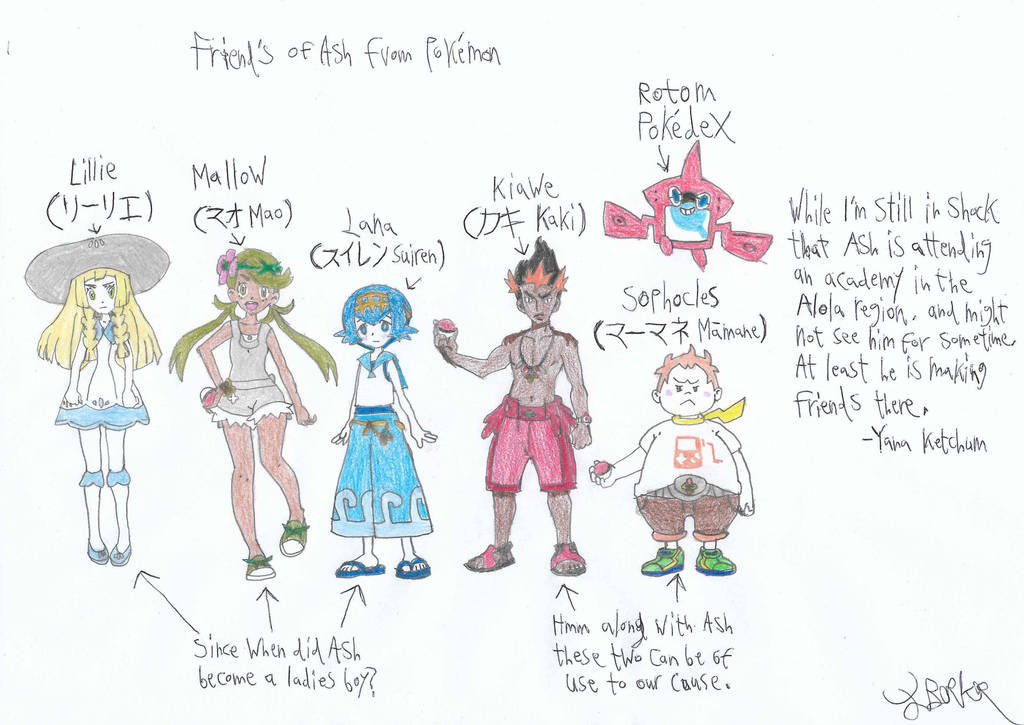 Friend's of Ash from Pokémon
Rotom
Pokédex
Lillie
(リーリエ)
Mallow
(マオ Mao)
Lana
(スイレン Suiren)
Kiawe
(カキ Kaki)
Sophocles
(マーマネ Mamane)
While I'm still in shock
that Ash is attending
an academy in the
Alola region, and might
not see him for sometime.
At least he is making
friends there.
-Yana Ketchum
Since when did Ash
become a ladies boy?
Hmm along with Ash
these two can be of
use to our cause.